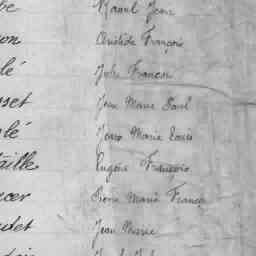 Raoul Jean
Aristide François
lé Jules Francois
sset Jean Marie Paul
lé Marie Louis
aille Eugène François
cer Pierre Marie Franço
det Jean Marie